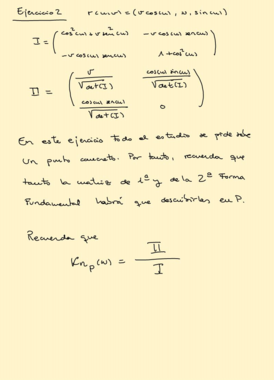 Ejercicio 2 r(u,v) = (v cos(u), u, sin(u))
I = ( cos²(u) + v² sen²(u) -v cos(u) sen(u)
-v cos(u) sen(u) 1 + cos²(u) )
II = ( v / √det(I) cos(u) sen(u) / √det(I)
cos(u) sen(u) / √det(I) 0 )
En este ejercicio todo el estudio se pide sobre
un punto concreto. Por tanto, recuerda que
tanto la matriz de 1ª y de la 2ª Forma
Fundamental habrá que describirlas en P.
Recuerda que
Kn_p(w) = II / I